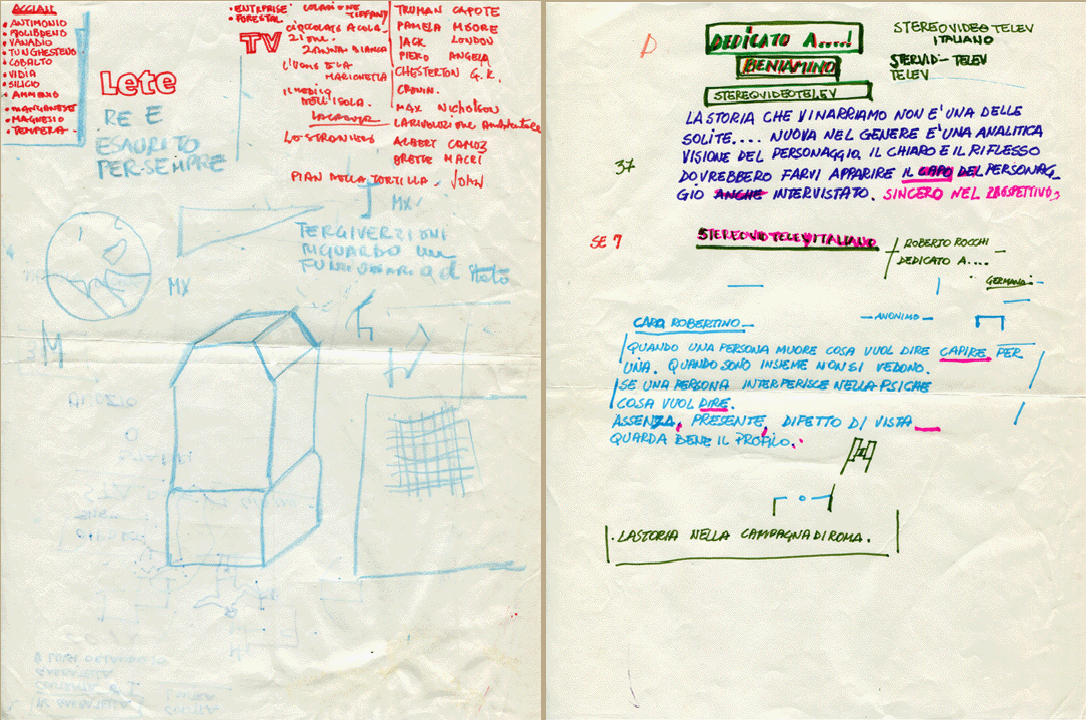 ACCIAI
• ANTIMONIO
• MOLIBDENO
• VANADIO
• TUNGHESTENO
• COBALTO
• VIDIA
• SILICIO
• AMMENIO
• MANGANESE
• MAGNESIO
• TEMPERA
Lete
RE E
ESAURITO
PER-SEMPRE
• ENTERPRISE
• FORESTAL
TV
COLAZIONE
TIFFANY
CIOCCOLATO A COLA-
ZIONE.
ZANNA BIANCA
L'UOMO E LA
MARIONETTA
IL MEDICO
DELL'ISOLA.
LO STRANIERO
PIAN DELLA TORTILLA. JOHN
TRUMAN CAPOTE
PAMELA MOORE
JACK LONDON
PIERO ANGELA
CHESTERTON G.K.
CRONIN.
MAX NICHOLSON
LA RIVOLUZIONE AMBIENTALE
ALBERT CAMOZ
ORETTE MACRI
MX
TERGIVERZIONI
RIGUARDO UN
FUNZIONARIO di Stato
MX
M
DEDICATO A.....!
BENIAMINO
STEREOVIDEOTELEV
STEREOVIDEO TELEV
ITALIANO
STERVID- TELEV
TELEV
LA STORIA CHE VI NARRIAMO NON E' UNA DELLE
SOLITE.... NUOVA NEL GENERE E' UNA ANALITICA
VISIONE DEL PERSONAGGIO. IL CHIARO E IL RIFLESSO
37
DOVREBBERO FARVI APPARIRE IL CAPO DEL PERSONAG-
GIO ANCHE INTERVISTATO. SINCERO NEL PROSPETTIVO
SE 7
STEREOVIDEOTELEV ITALIANO
ROBERTO ROCCHI
DEDICATO A....
GERMANO
CARO ROBERTINO
— ANONIMO —
QUANDO UNA PERSONA MUORE COSA VUOL DIRE CAPIRE PER
UNA. QUANDO SONO INSIEME NON SI VEDONO.
SE UNA PERSONA INTERFERISCE NELLA PSICHE
COSA VUOL DIRE.
ASSENZA, PRESENTE, DIFETTO DI VISTA
QUARDA BENE IL PROFILO.
. LA STORIA NELLA CAMPAGNA DI ROMA.